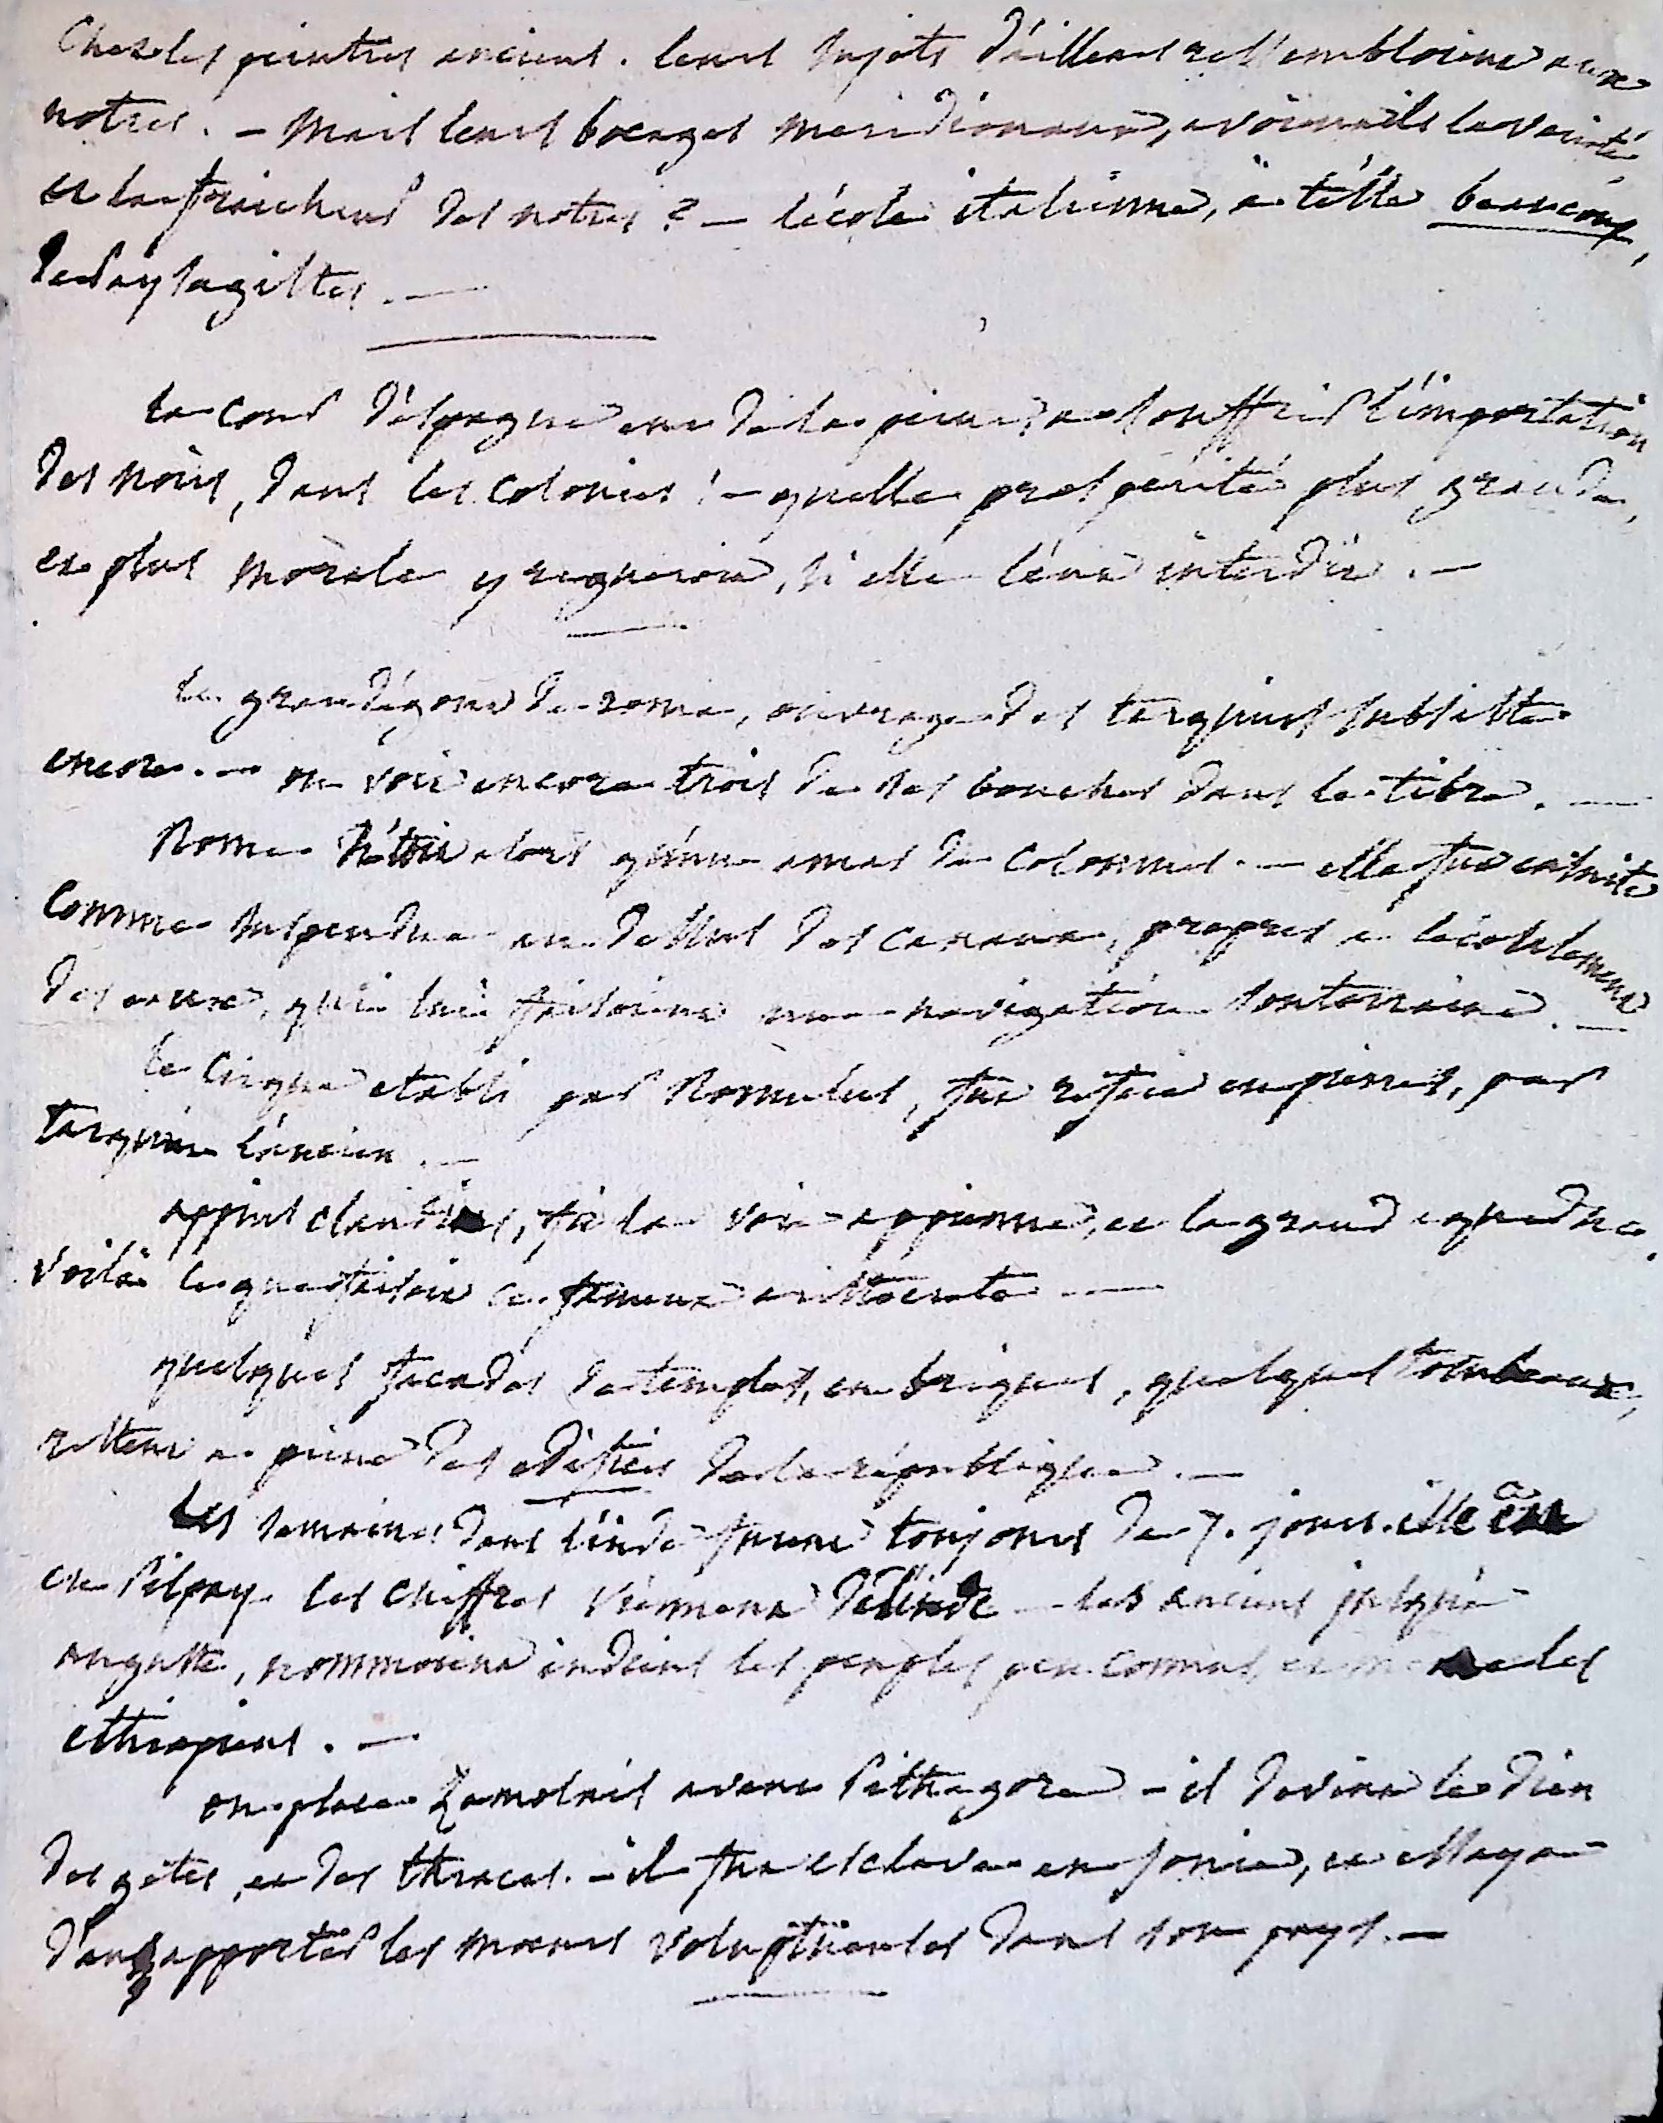 Chez les peintres anciens. leurs sujets d'ailleurs ressembloient aux
notres. - Mais leurs bocages meridionaux, avoient ils la variété,
et la fraicheur des notres ? - l'école italienne, a t'elle beaucoup,
de paysagistes. -
la cour d'espagne eut de la peine, a souffrir l'importation
des noirs, dans les colonies ! - quelle prospérité plus grande,
et plus morale y regneroit, si elle l'eut interdit. -
le grand égout de rome, ouvrage des tarquins subsiste
encore. - on voit encore trois de ses bouches dans le tibre. -
Rome n'étoit alors qu'un amas de colonnes. - elle fut ensuite
comme suspendue au dessus des canaux, propres a l'écoulement
des eaux, qui lui faisoient une navigation souterraine. -
le cirque etabli par Romulus, fut refait en pierres, par
tarquin l'ancien. -
appius claudius, fit la voie appienne, et le grand aqueduc.
voilà ce que faisoit ce fameux aristocrate. -
quelques facades de temples, en briques, quelques tombeaux,
restent a peine des edifices de la république. -
Les semaines dans l'inde furent toujours de 7. jours. elle a
eu Pilpay. les chiffres viennent de l'inde - les anciens jusqu'à
auguste, nommoient indiens les peuples peu connus, et meme les
ethiopiens. -
on place Zamolxis avant Pithagore - il devint le dieu
des gètes, et des thraces. - il fut esclave en Ionie, et essaya
d'en apporter les mœurs voluptueuses dans son pays. -